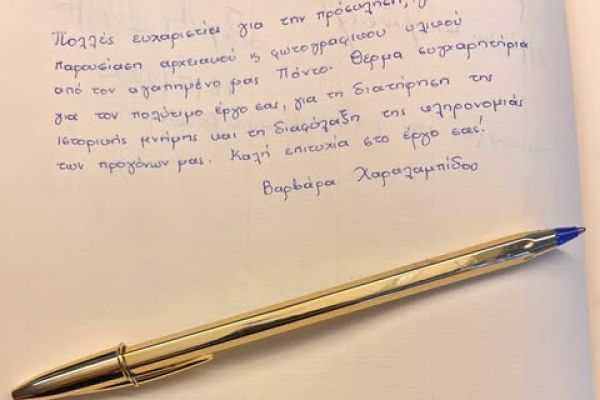 Πολλές ευχαριστίες για την πρόσκληση,
παρουσίαση αρχειακού & φωτογραφικού υλικού
από τον αγαπημένο μας Πόντο. Θερμά συγχαρητήρια
για τον πολύτιμο έργο σας, για τη διατήρηση της
ιστορικής μνήμης και τη διαφύλαξη της κληρονομιάς
των προγόνων μας. Καλή επιτυχία στο έργο σας!
Βαρβάρα Χαραλαμπίδου